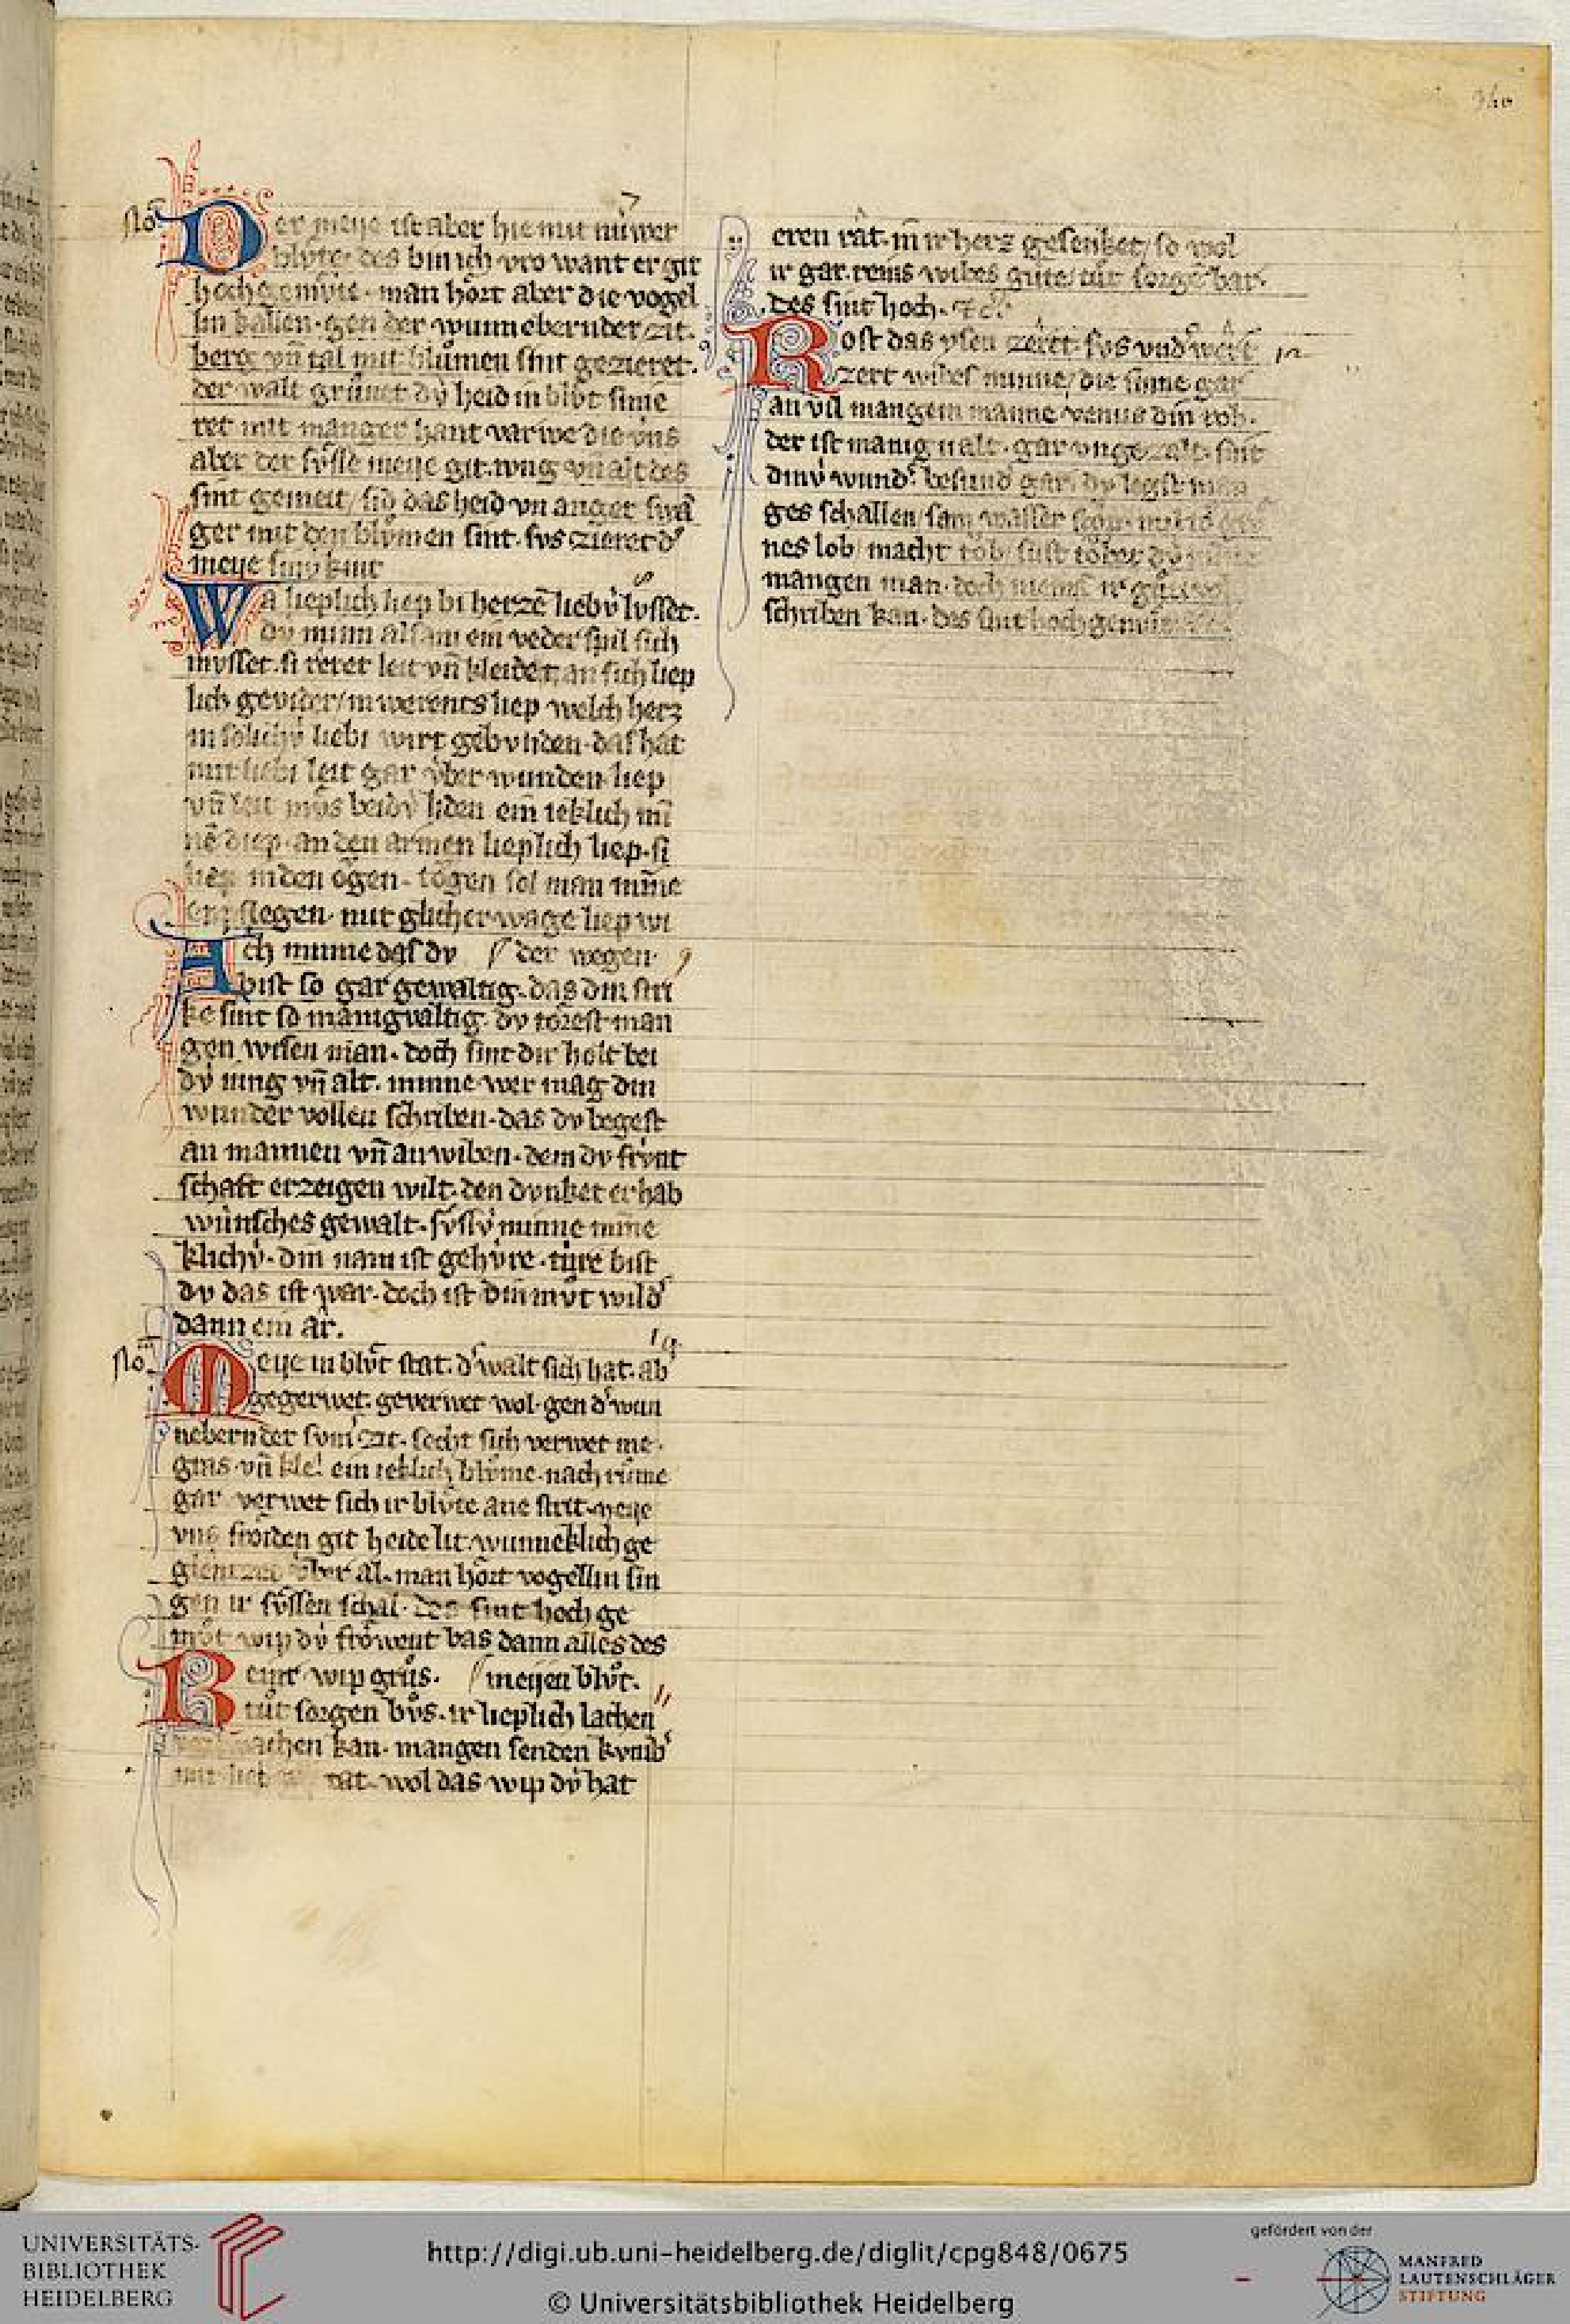 340
No
Der meije ist aber hie mit nuwer
blvte. des bin ich vro want er git
hochgemvte. man hort aber die vogel
lin kallen. gen der wunnebernder zit.
berg vn̄ tal mit blůmen sint gezieret.
der walt grůnet dv̍ heid in blvt finie
ret mit manger hant varwe die vns
aber der svsse meije git. iung vn̄ alt des
sint gemeit/ sid das heid vn anger swā
ger mit den blvmen sint. svs zieret d'
meije sinv kint
Wa lieplich liep bi herzē liebv̍ lvsset.
dv minn alsam ein vederspil sich
mvsset. si reret leit vn̄ kleidet an sich liep
lich gevider/ in werendes liep welch herz
in solichv̍ liebi wirt gebvnden. das hat
mit liebi leit gar v̍ber wunden. liep
vn̄ leit mvs beidv̍ liden ein ieklich mī
nē diep. an den armen lieplich liep. si
liep in den ogen. togen sol man minne
pflegen. mit glicher wage liep wi
Ach minne das dv / der wegen.
bist so gar gewaltig. das din stri
ke sint so manigvaltig. dv torest man
gen wisen man. doch sint dir holt bei
dv̍ iung vn̄ alt. minne wer mag din
wunder vollen schriben. das dv begest
an mannen vn̄ an wiben. dem dv frvnt
schaft erzeigen wilt. den dvnket er hab
wunsches gewalt. svssv̍ minne mine
klichv̍. din nam ist gehv̍re. ture bist
dv das ist war. doch ist din mvt wild'
dann ein ar.
No
Meije in blvt stat. d' walt sich hat. ab'
gegerwet. geverwet wol. gen d' wun
nebernder svm' zit. secht sich verwet me.
gras. vn̄ kle! ein ieklich blvme. nach rume
gar verwet sich ir blvte ane strit. meije
vns froiden git heide lit wunneklich ge
glentzet v̍ber al. man hort vogellin sin
gen ir svssen schal. des sint hoch ge
mvt wip dv̍ frowent bas dann alles des
Reine wip grůs. / meijen blvt.
tůt sorgen bvs. ir lieplich lachen
machen kan. mangen senden kvmb'
tat. wol das wip dv̍ hat
eren rat. in ir herz gesenket/ so wol
ir gar. reins wibes gůte/ tůt sorge bar.
des sint hoch. zc.
Rost das ysen zeret. svs vnd wert
zert wibes minne/ die sinne gar
an vil mangem manne venus din tob.
der ist manig ualt. gar vngezalt. sint
dinv̍ wund'. besund' gar. dv legst man
ges schallen/ sam wasser
nes lob/ macht tob/ sust tobet dv̍
mangen man. doch nieman ir gůte wol
schriben kan. des sint hochgemůt
UNIVERSITÄTS-
BIBLIOTHEK
HEIDELBERG
http://digi.ub.uni-heidelberg.de/diglit/cpg848/0675
© Universitätsbibliothek Heidelberg
gefördert von der
MANFRED
LAUTENSCHLÄGER
STIFTUNG